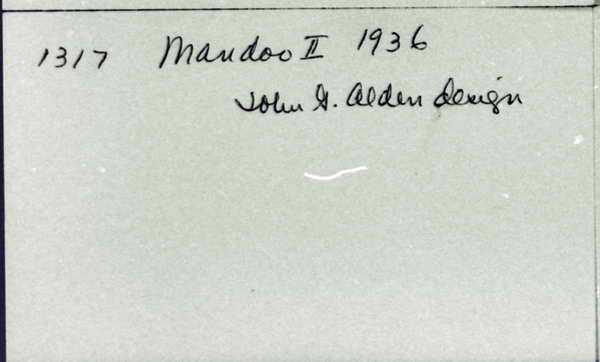 1317 Mandoo II 1936
John G. Alden design